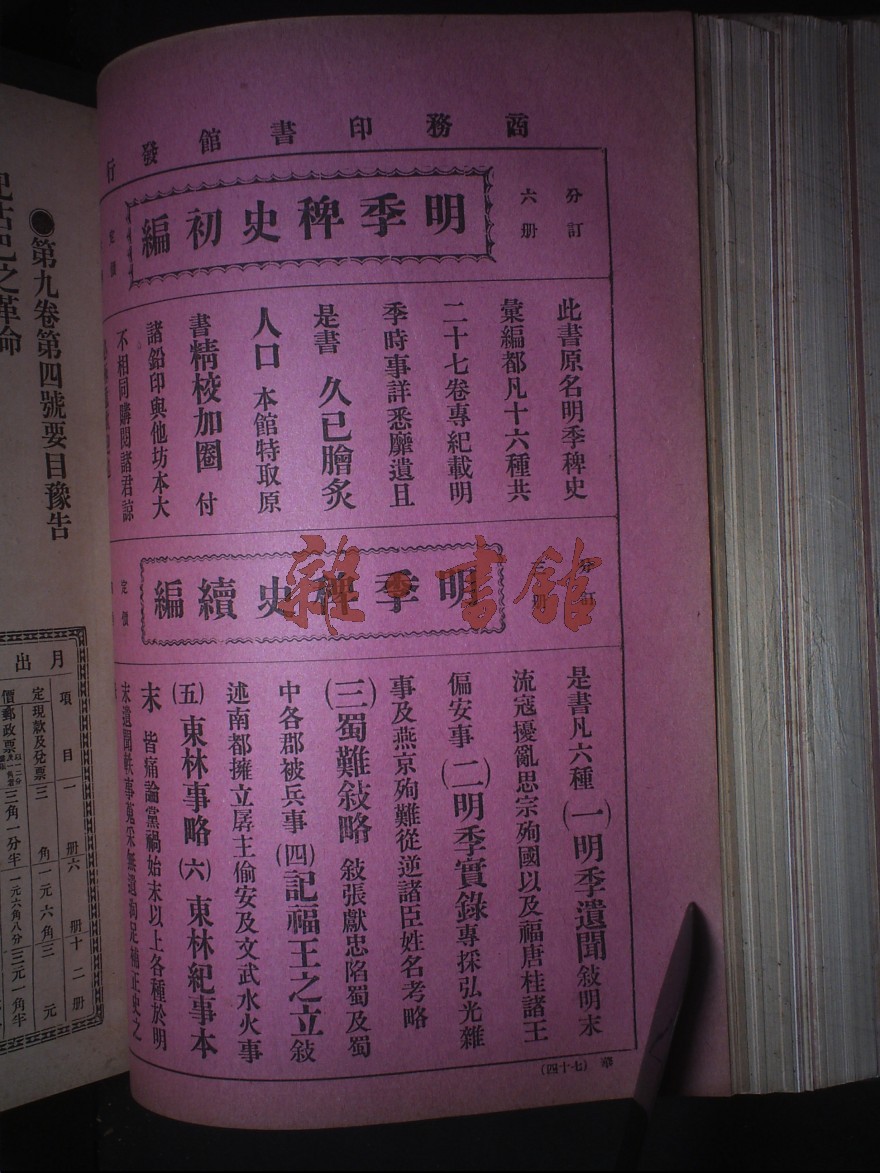 商務印書館發行
分訂
六册
明季稗史初編
定價
此書原名明季稗史
彙編都凡十六種共
二十七卷專紀載明
季時事詳悉靡遺且
是書久已膾炙
人口本館特取原
書精校加圈付
諸鉛印與他坊本大
不相同購閱諸君諒
分訂
三册
明季稗史續編
定價
是書凡六種(一)明季遺聞敍明末
流寇擾亂思宗殉國以及福唐桂諸王
偏安事(二)明季實錄專採弘光雜
事及燕京殉難從逆諸臣姓名考略
(三)蜀難敍略敍張獻忠陷蜀及蜀
中各郡被兵事(四)記福王之立敍
述南都擁立孱主偷安及文武水火事
(五)東林事略(六)東林紀事本
末皆痛論黨禍始末以上各種於明
末遺聞軼事蒐采無遺洵足補正史之
華(七十四)
雜·書館
●第九卷第四號要目豫告
之革命
月出
項目
一册
六册
十二册
定現款及兌票
三角
一元六角
三元
價郵政票
三角一分半
一元六角八分
三元一角半